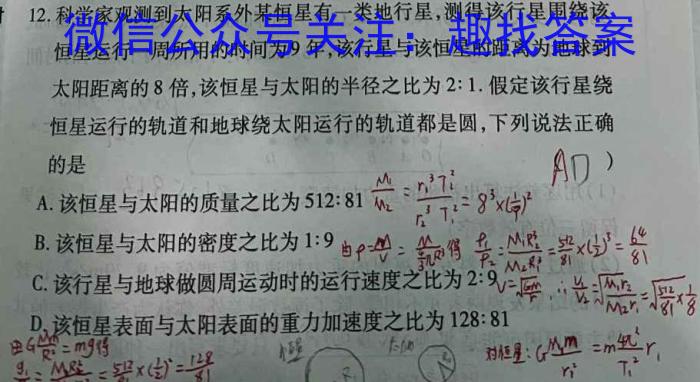 12.科学家观测到太阳系外某恒星有一类地行星,测得该行星围绕该
恒星运行一周所用的时间为9年,该行星与该恒星的距离为地球到
微信公众号关注：趣找答案
太阳距离的8倍,该恒星与太阳的半径之比为2:1.假定该行星绕
恒星运行的轨道和地球绕太阳运行的轨道都是圆,下列说法正确
的是
AD )
A.该恒星与太阳的质量之比为512:81
M₁/M₂ = r₁³T₂²/r₂³T₁² = 8³×(1/9)²
B.该恒星与太阳的密度之比为1:9
由ρ=M/V = M/(4/3πR³)得 ρ₁/ρ₂ = M₁R₂³/M₂R₁³ = 512/81×(1/2)³ = 64/81
C.该行星与地球做圆周运动时的运行速度之比为2:9
V=√(GM/r) ∴ V₁/V₂ = √(M₁r₂/M₂r₁) = √(512/81×1/8)
D.该恒星表面与太阳表面的重力加速度之比为128:81
由G Mm/R² = mg得
= 512/81×(1/2)² = 128/81
对恒星: G M₁m/r₁² = m 4π²/T₁² r₁